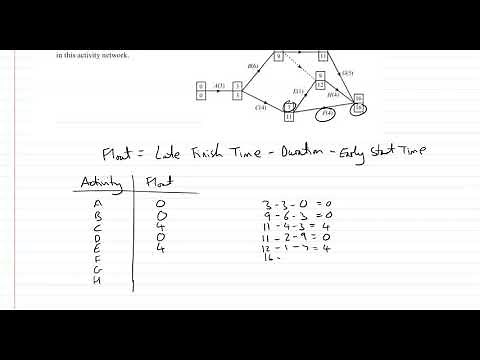 in this activity network.
9 11
B(6) G(5)
0 A(3) 3 9 16
0 3 E(1) 12 H(4) 16
C(4) 7 F(4)
11
Float = Late Finish Time - Duration - Early Start Time
Activity Float
A 0 3 - 3 - 0 = 0
B 0 9 - 6 - 3 = 0
C 4 11 - 4 - 3 = 4
D 0 11 - 2 - 9 = 0
E 4 12 - 1 - 7 = 4
F 16 -
G
H